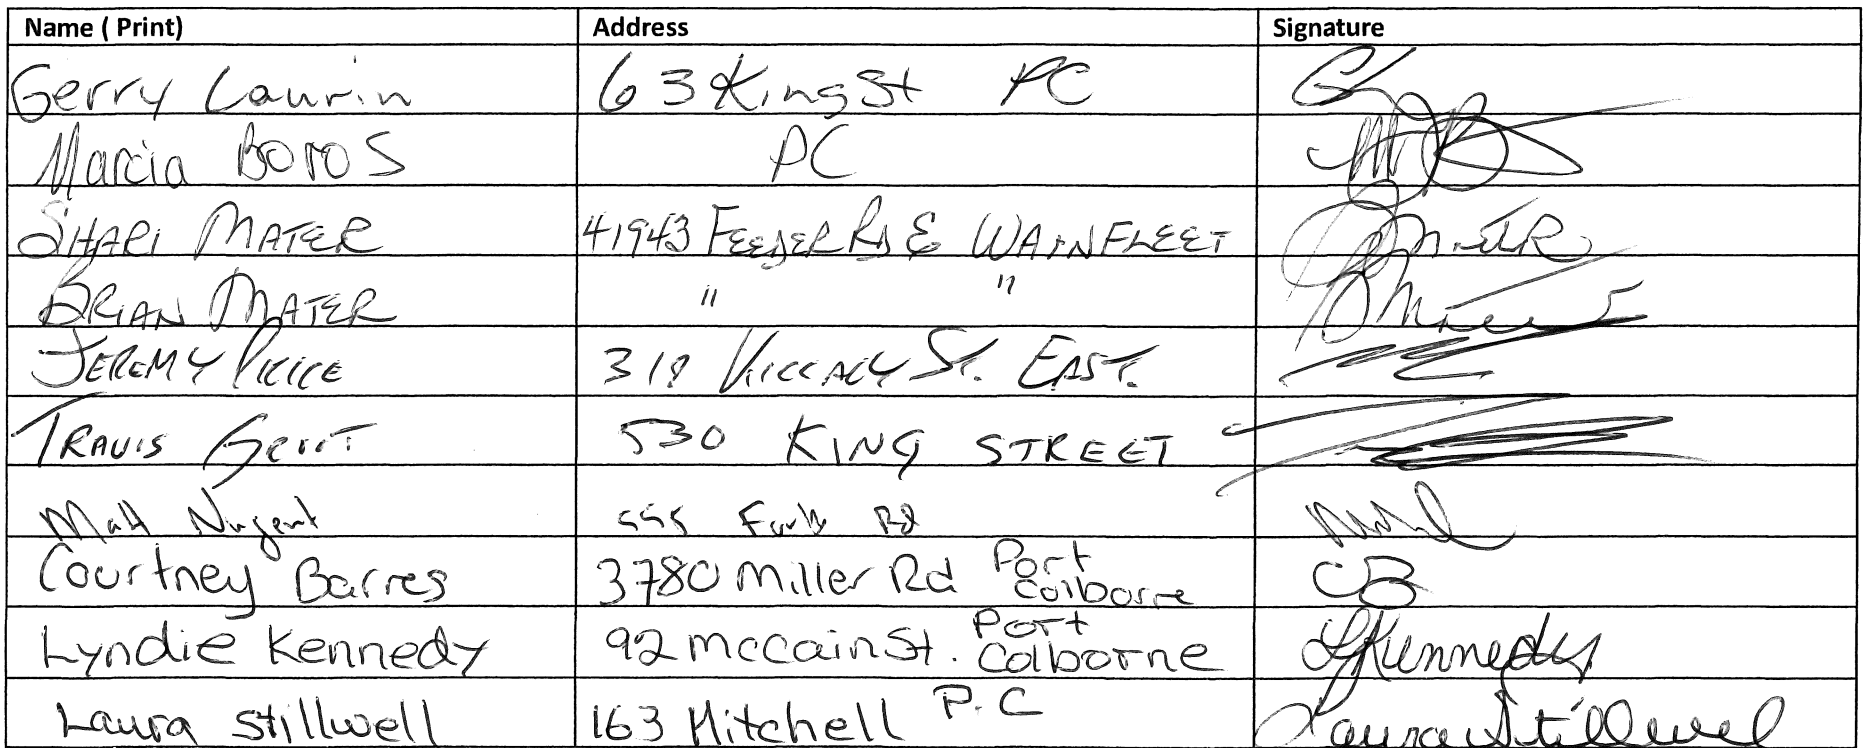 Name ( Print) Address Signature
Gerry Laurin 63 King St PC
Marcia Boros PC
SHARI MATER 41943 FEEDER Rd E WAINFLEET
BRIAN MATER " "
JEREMY PRICE ST. EAST.
TRAVIS 530 KING STREET
Matt Nugent Rd
Courtney Barres 3780 Miller Rd Port Colborne CB
Lyndie Kennedy 92 McCain St. Port Colborne LKennedy
Laura Stillwell 163 Mitchell P.C Laura Stillwell